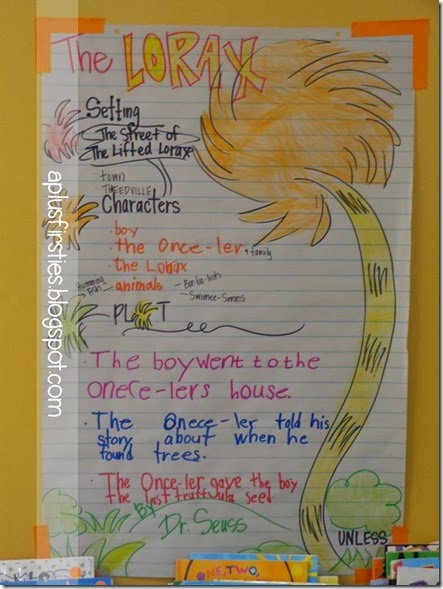 The LORAX
Setting
The Street of
The Lifted Lorax
· town
· THEEDVILLE
Characters
· boy
· the Once-ler + family
· the Lorax
· animals
Humming Fish
- Bar-ba-loots
- Swomee-Swans
PLOT
· The boy went to the
onece-lers house.
· The Onece-ler told his
story about when he
found trees.
· The Once-ler gave the boy
the last truffuula seed
By
Dr. Seuss
UNLESS
ONE, TWO,
aplusfirsties.blogspot.com